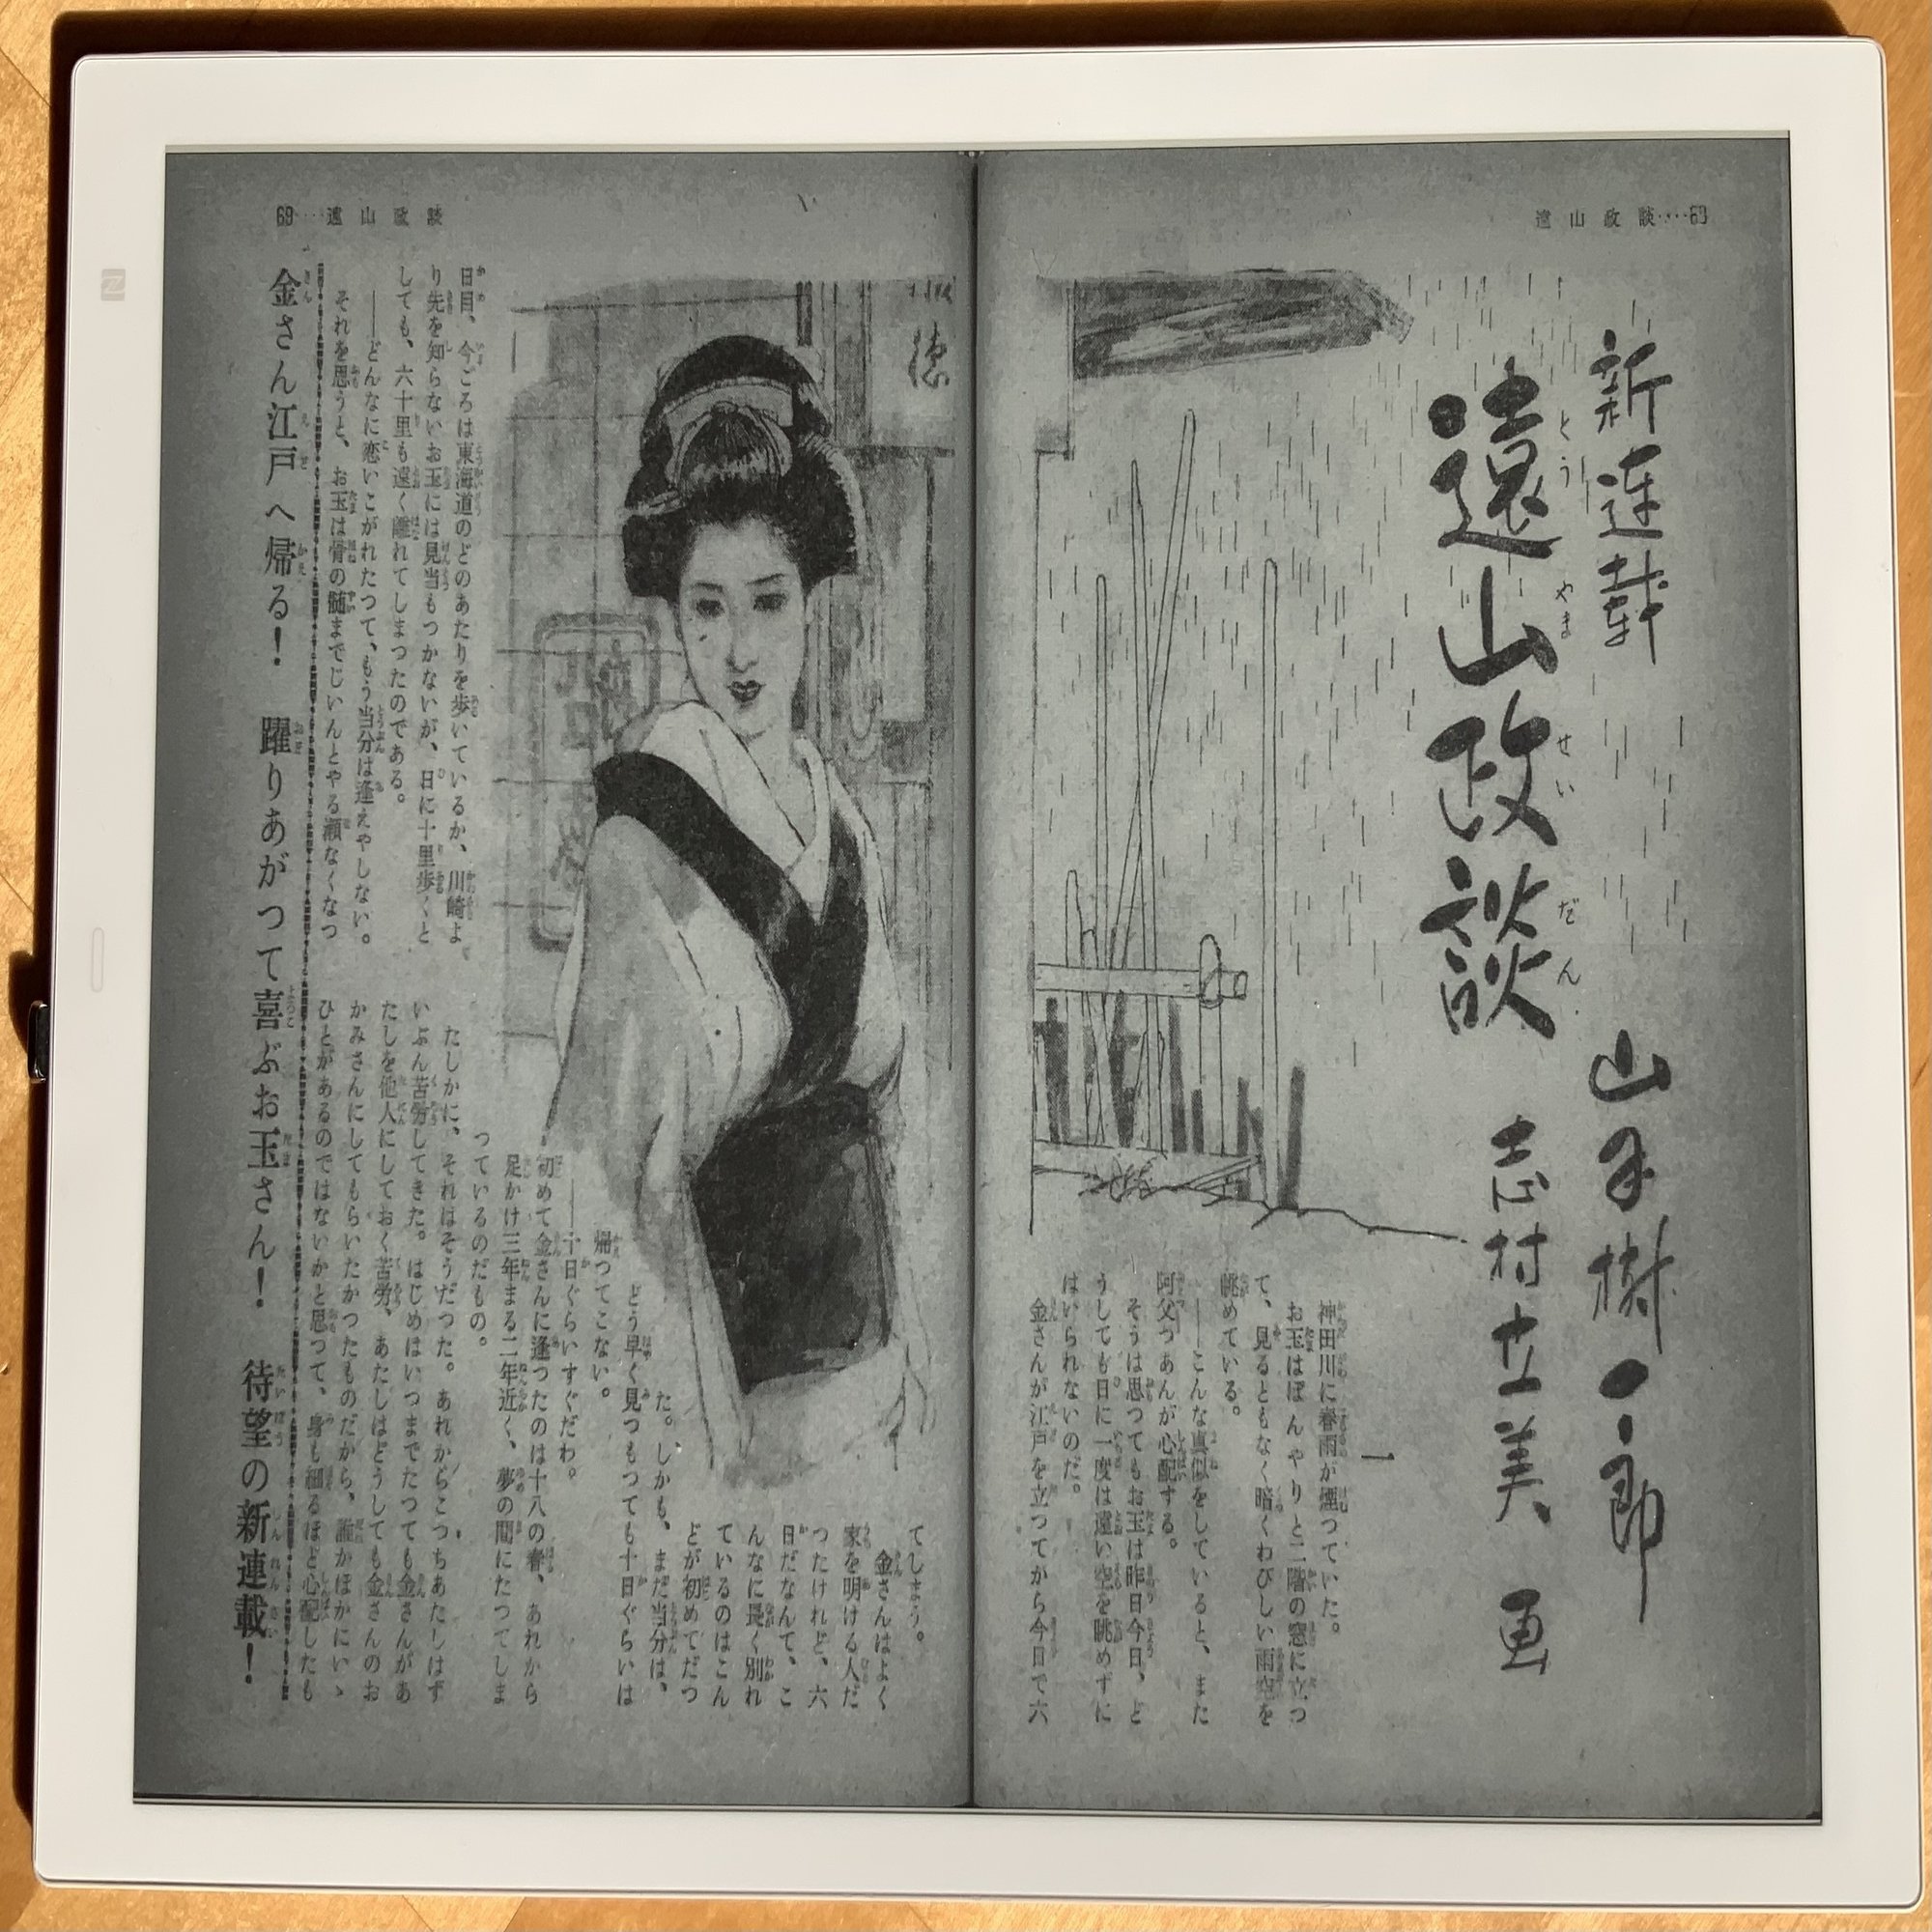 遠山政談‥‥63
新連載
山手樹一郎
遠山政談
とうやませいだん
志村立美 画
一
神田川に春雨が煙つていた。
お玉はぼんやりと二階の窓に立つ
て、見るともなく暗くわびしい雨空を
眺めている。
――こんな真似をしていると、また
阿父つあんが心配する。
そうは思つてもお玉は昨日今日、ど
うしても日に一度は遠い空を眺めずに
はいられないのだ。
金さんが江戸を立つてから今日で六
69‥‥遠山政談
日目、今ごろは東海道のどのあたりを歩いているか、川崎よ
り先を知らないお玉には見当もつかないが、日に十里歩くと
しても、六十里も遠く離れてしまつたのである。
――どんなに恋いこがれたつて、もう当分は逢えやしない。
それを思うと、お玉は骨の髄までじいんとやる瀬なくなつ
てしまう。
金さんはよく
家を明ける人だ
つたけれど、六
日だなんて、こ
んなに長く別れ
ているのはこん
どが初めてだつ
た。しかも、まだ当分は、
どう早く見つもつても十日ぐらいは
帰つてこない。
――十日ぐらいすぐだわ。
初めて金さんに逢つたのは十八の春、あれから
足かけ三年まる二年近く、夢の間にたつてしま
つているのだもの。
たしかに、それはそうだつた。あれからこつちあたしはず
いぶん苦労してきた。はじめはいつまでたつても金さんがあ
たしを他人にしておく苦労、あたしはどうしても金さんのお
かみさんにしてもらいたかつたものだから、誰かほかにいゝ
ひとがあるのではないかと思つて、身も細るほど心配したも
金さん江戸へ帰る！ 躍りあがつて喜ぶお玉さん！ 待望の新連載！